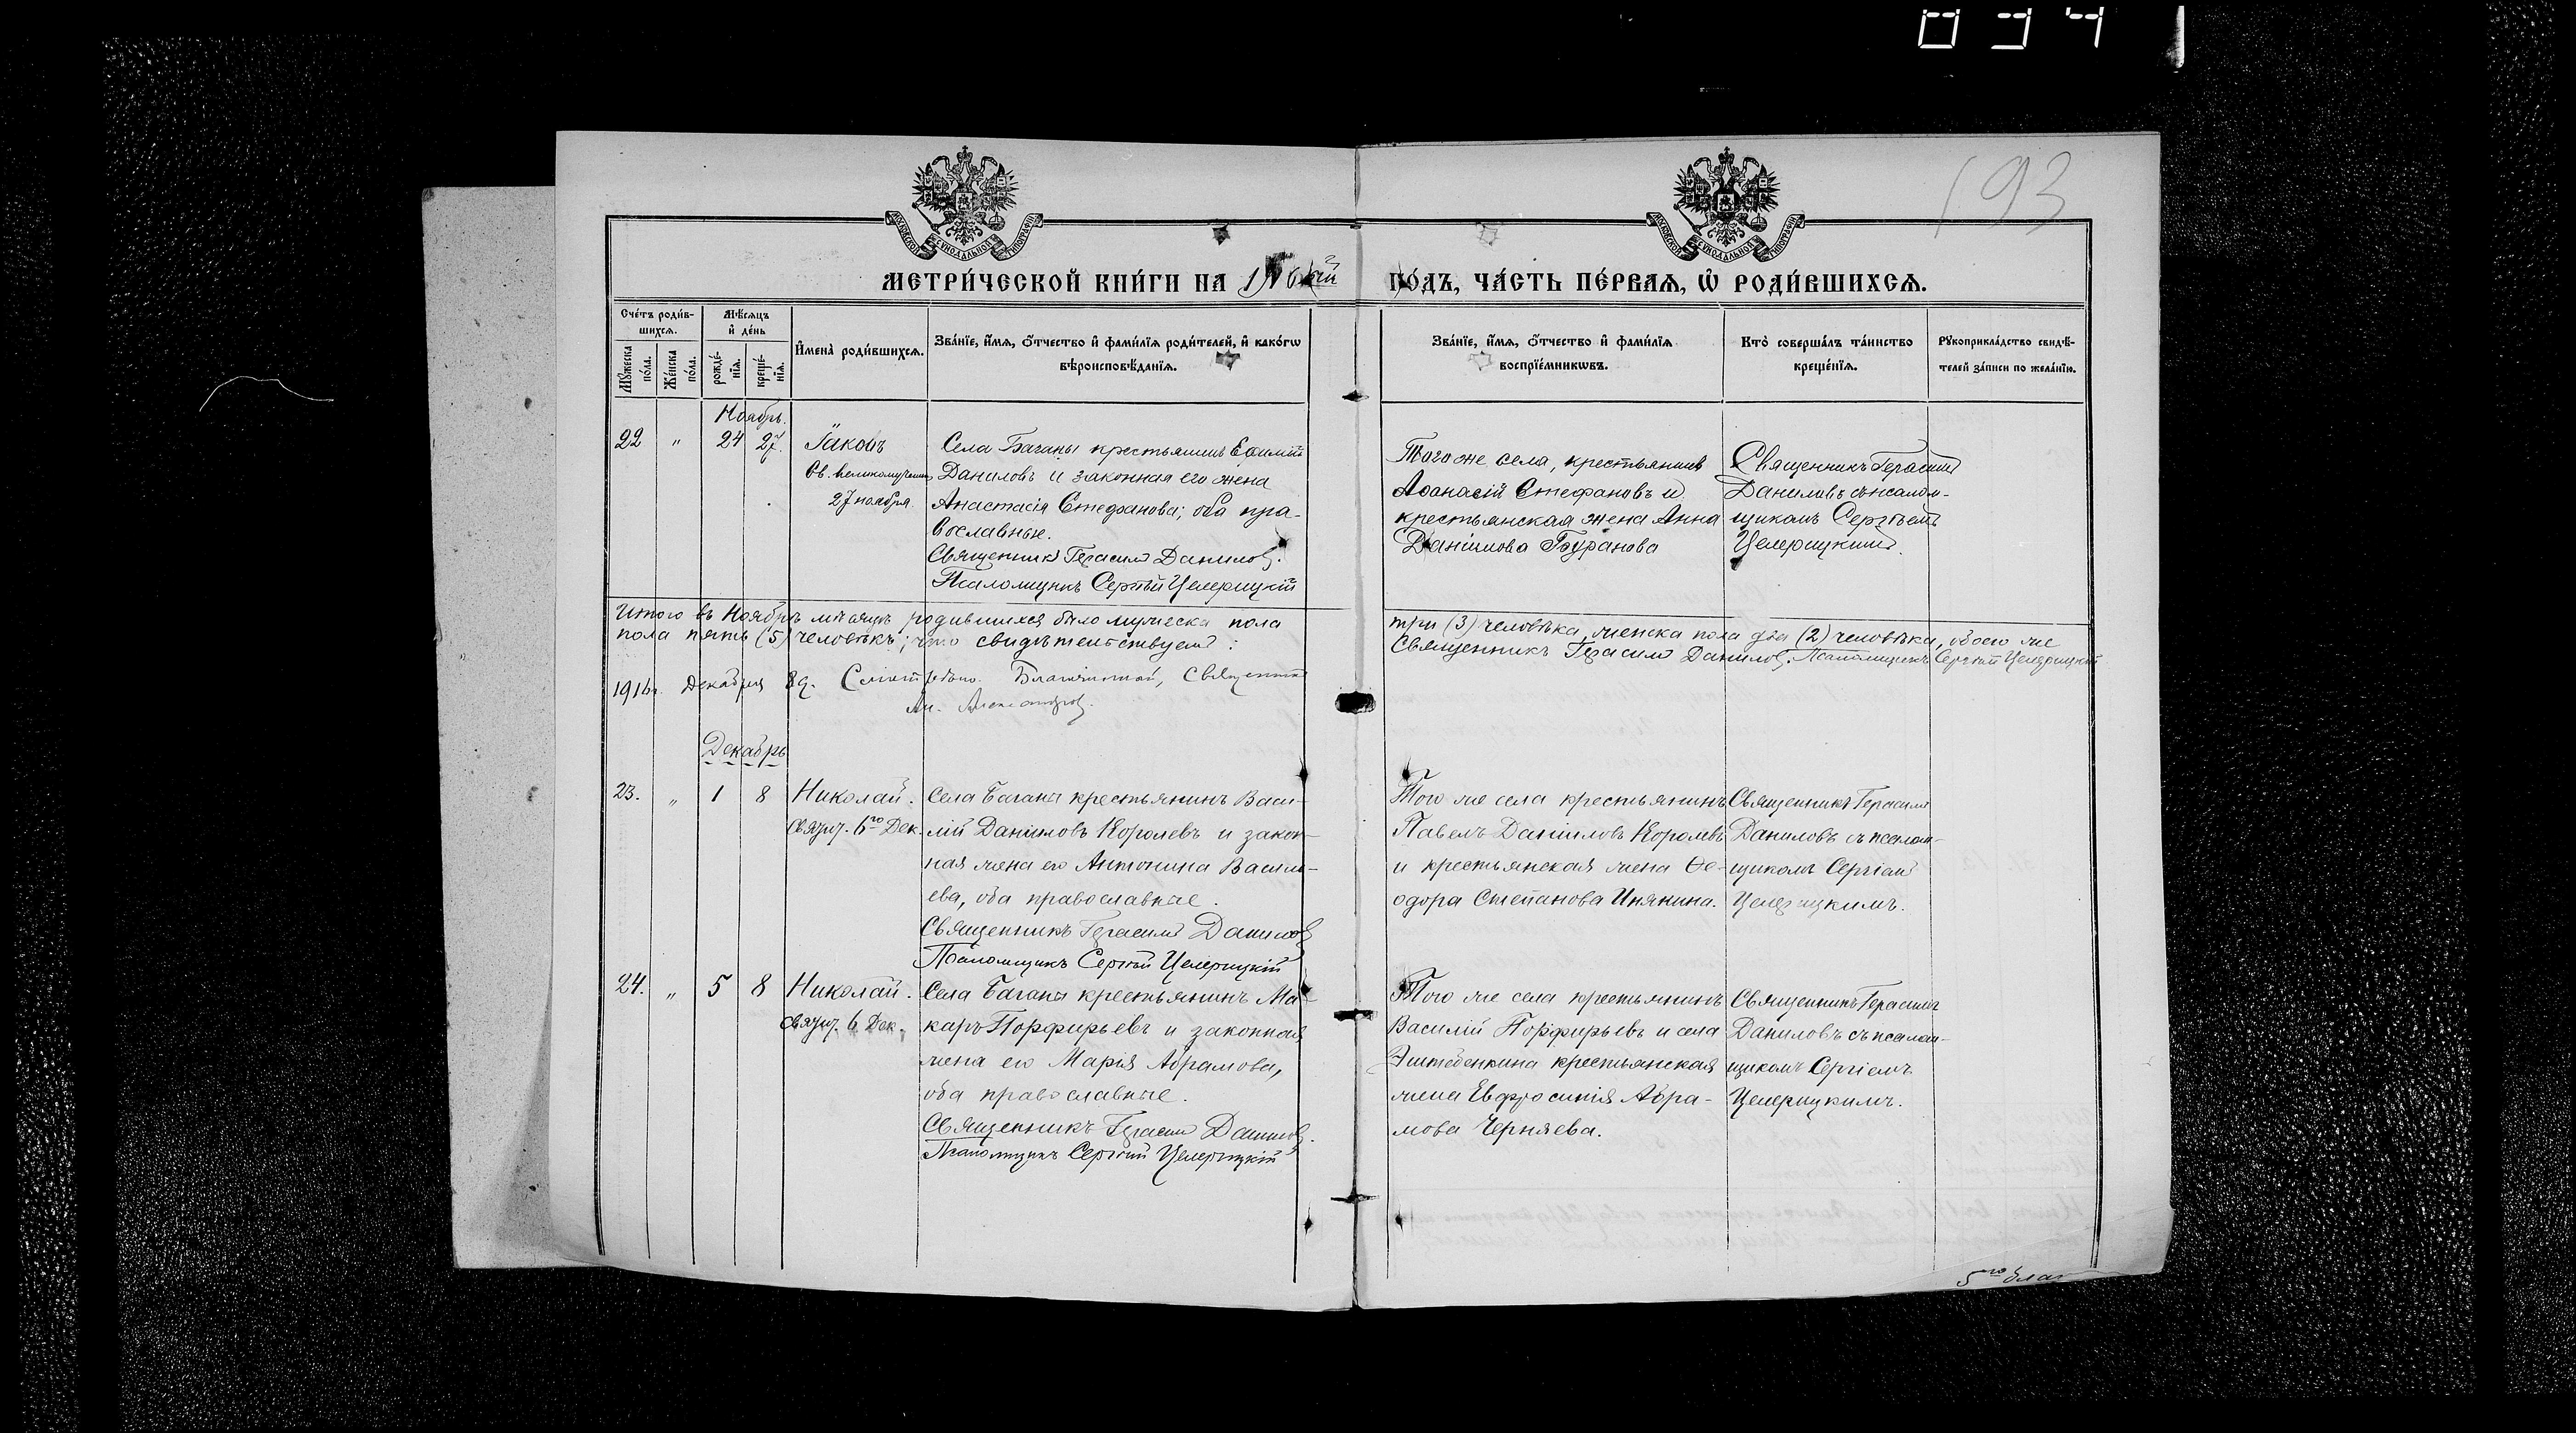 193
МЕТРИ́ЧЕСКОЙ КНИ́ГИ НА 1916ый ГО́ДЪ, ЧА́СТЬ ПЕ́РВАѦ, Ѡ҆ РОДИ́ВШИХСѦ.
Сче́тъ роди́в-
шихсѧ.
Мꙋ́жеска по́ла.
Же́нска по́ла.
Мѣ́сѧцъ
и҆ де́нь
рожде́-
нїѧ.
креще́-
нїѧ.
И҆мена̀ роди́вшихсѧ.
Зва́нїе, и҆́мѧ, ѻ҆́тчество и҆ фами́лїѧ роди́телей, и҆ како́гѡ
вѣроисповѣ́данїѧ.
Зва́нїе, и҆́мѧ, ѻ҆́тчество и҆ фами́лїѧ
воспрїе́мникѡвъ.
Кто̀ соверша́лъ та́инство
креще́нїѧ.
Рꙋкоприкла́дство свидѣ́-
телей за́писи по жела́нїю.
Ноябрь.
22 " 24 27. Іаковъ
Св. великомученик
27 ноября.
Села Баганы крестьянинъ Ефимій
Даниловъ и законная его жена
Анастасія Стефанова; оба пра-
вославные.
Священникъ Герасимъ Данилов.
Псаломщикъ Сергѣй Целерицкій
Того же села, крестьянинъ
Аѳанасій Стефановъ и
крестьянская жена Анна
Даніилова
Священникъ Герасимъ
Даниловъ съ псалом-
щикомъ Сергѣемъ
Целерицкимъ.
Итого въ Ноябрѣ мѣсяцѣ родившихся было мужеска пола три (3) человѣка, женска пола два (2) человѣка, обоего же
пола пять (5) человѣкъ; что свидѣтельствуемъ: Священникъ Герасимъ Данилов. Псаломщикъ Сергѣй Целерицкій
1916 г. Декабря 8 д. Благочинный, Священникъ
Александров.
Декабрь
23. " 1 8 Николай.
празд. 6го Дек.
Села Баганы крестьянинъ Васи-
лій Даніиловъ Королевъ и закон-
ная жена его Антонина Василь-
ева, оба православные.
Священникъ Герасимъ Данилов
Псаломщикъ Сергѣй Целерицкій
Того же села крестьянинъ
Павелъ Даніиловъ Королевъ
и крестьянская жена Ѳе-
одора Степанова Инянина.
Священникъ Герасимъ
Даниловъ съ псалом-
щикомъ Сергіемъ
Целерицкимъ.
24. " 5 8 Николай.
празд. 6 Дек.
Села Баганы крестьянинъ Ма-
каръ Порфирьевъ и законная
жена его Марія Абрамова,
оба православные.
Священникъ Герасимъ Данилов.
Псаломщикъ Сергѣй Целерицкій
Того же села крестьянинъ
Василій Порфирьевъ и села
Эштебенкина крестьянская
жена Евфросинія Абра-
мова Черняева.
Священникъ Герасимъ
Даниловъ съ псалом-
щикомъ Сергіемъ
Целерицкимъ.
5го благ